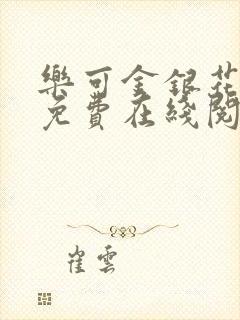 樂可金銀花
免費在綫閱
崔雲